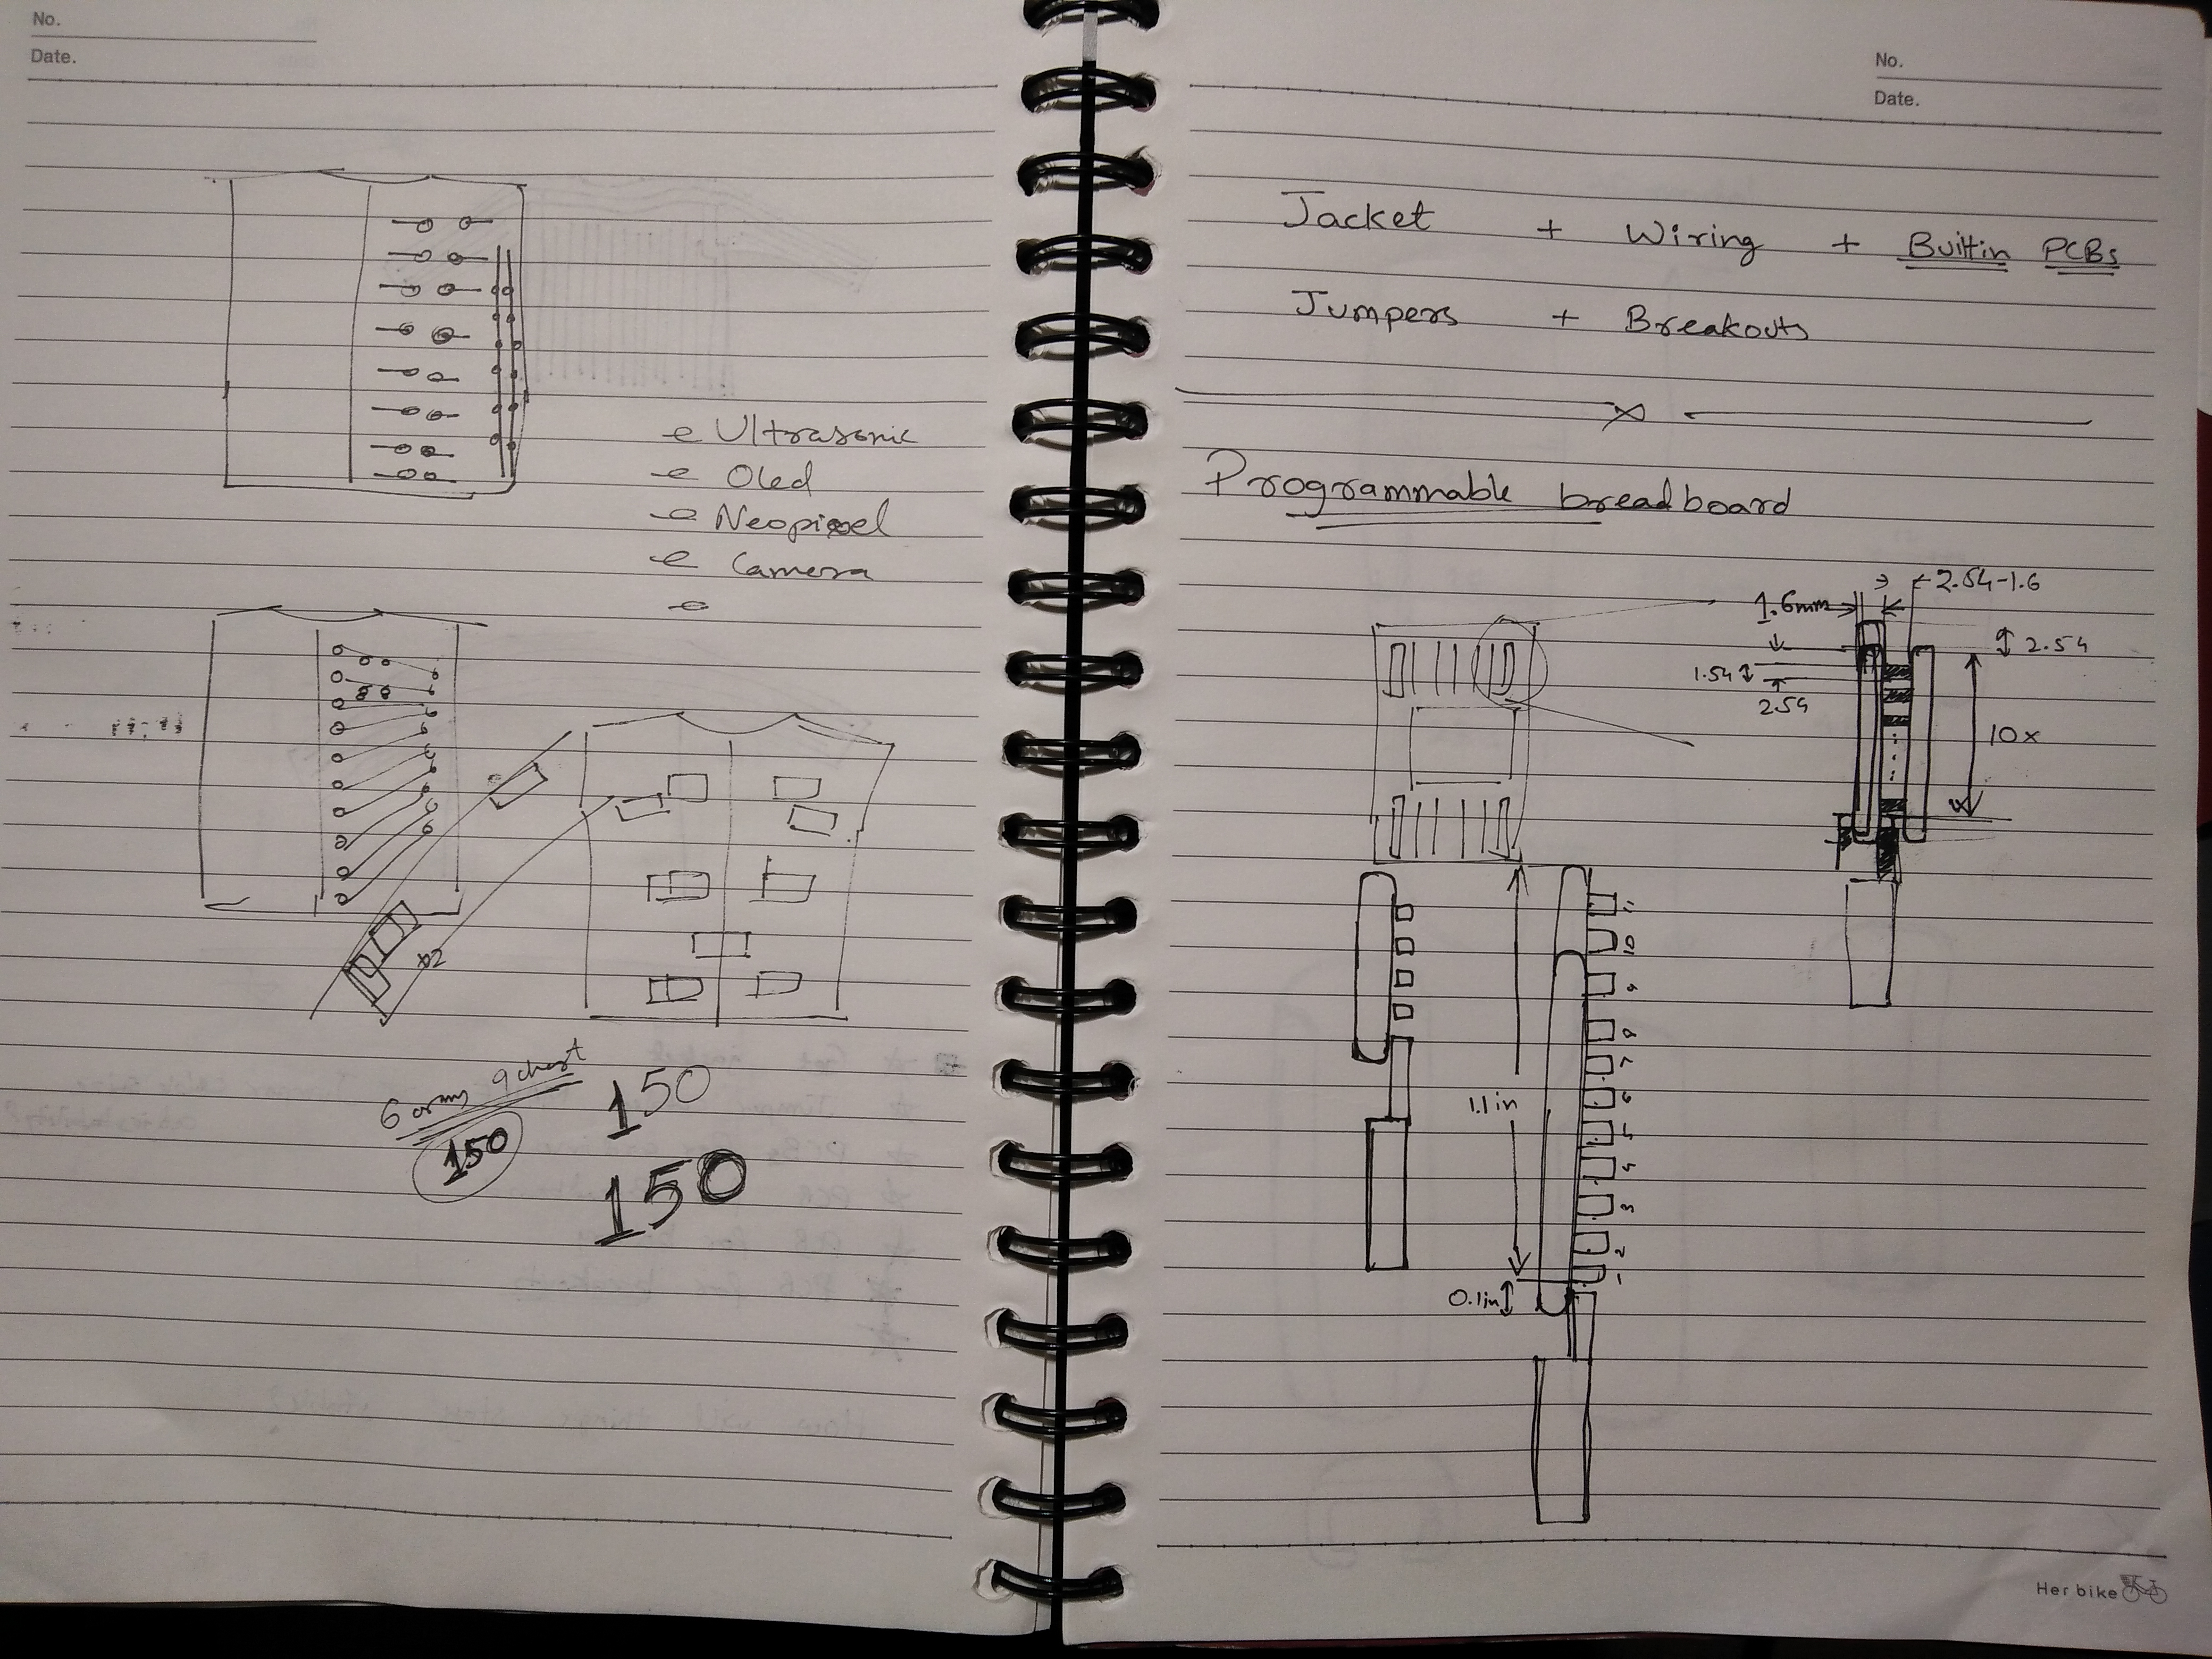 No.
Date.
Ultrasonic
Oled
Neopixel
Camera
x2
6 arms 9 chest
150
150
150
No.
Date.
Jacket + Wiring + Builtin PCBs
Jumpers + Breakouts
Programmable breadboard
2.54-1.6
1.6mm
2.54
1.54
2.54
10x
11
10
9
8
7
6
5
4
3
2
1
1.1in
0.1in
Her bike